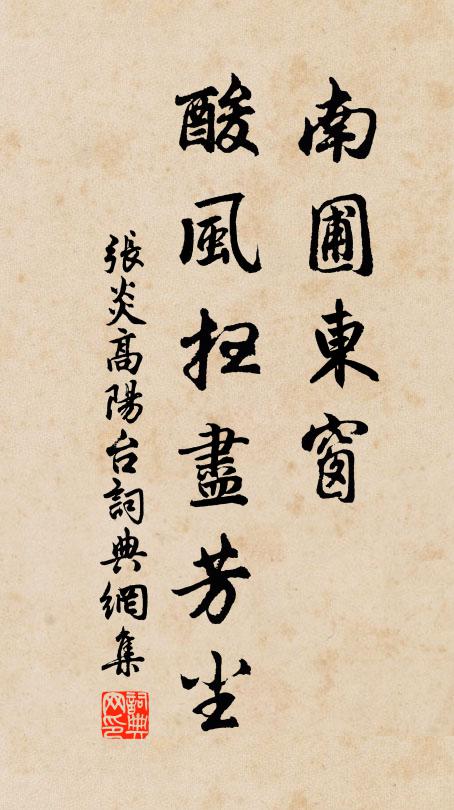 南圃東窗
酸風扫盡芳尘
張炎高陽台詞典網集
詞典网印